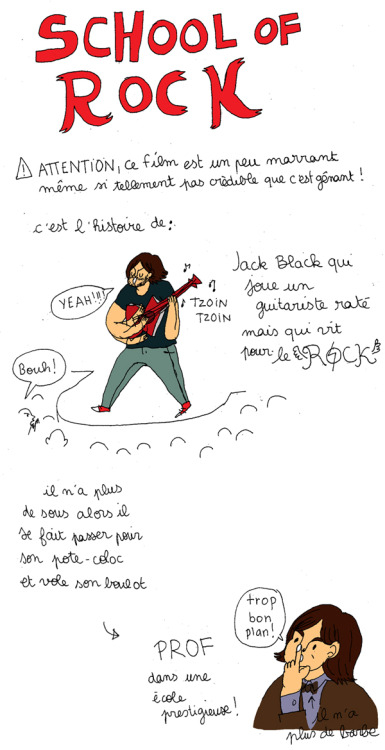 SCHOOL OF
ROCK
ATTENTION, ce film est un peu marrant
même si tellement pas crédible que c'est gênant !
c'est l'histoire de :
Jack Black qui
joue un
guitariste raté
mais qui vit
pour le ROCK
YEAH!!!!
TZOIN
TZOIN
Bouh !
il n'a plus
de sous alors il
se fait passer pour
son pote-coloc
et vole son boulot
PROF
dans une
école
prestigieuse !
trop
bon
plan !
il n'a
plus de barbe